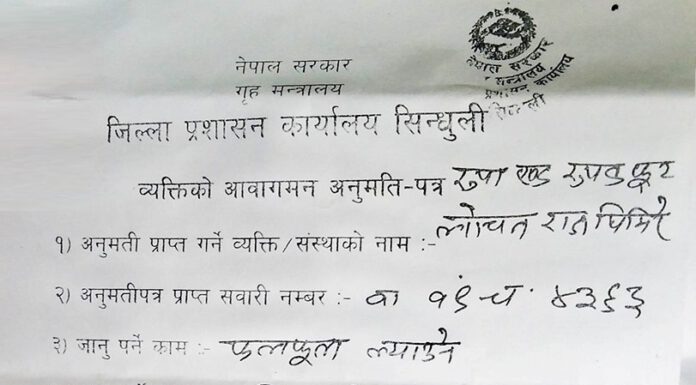 नेपाल सरकार
गृह मन्त्रालय
जिल्ला प्रशासन कार्यालय सिन्धुली
नेपाल सरकार
मन्त्रालय
प्रशासन कार्यालय
व्यक्तिको आवागमन अनुमति-पत्र
१) अनुमती प्राप्त गर्ने व्यक्ति/संस्थाको नाम :- लोचन राज घिमिरे
२) अनुमतीपत्र प्राप्त सवारी नम्बर :- बा १९ च ४३६३
३) जानु पर्ने काम :- फलफूल ल्याउने